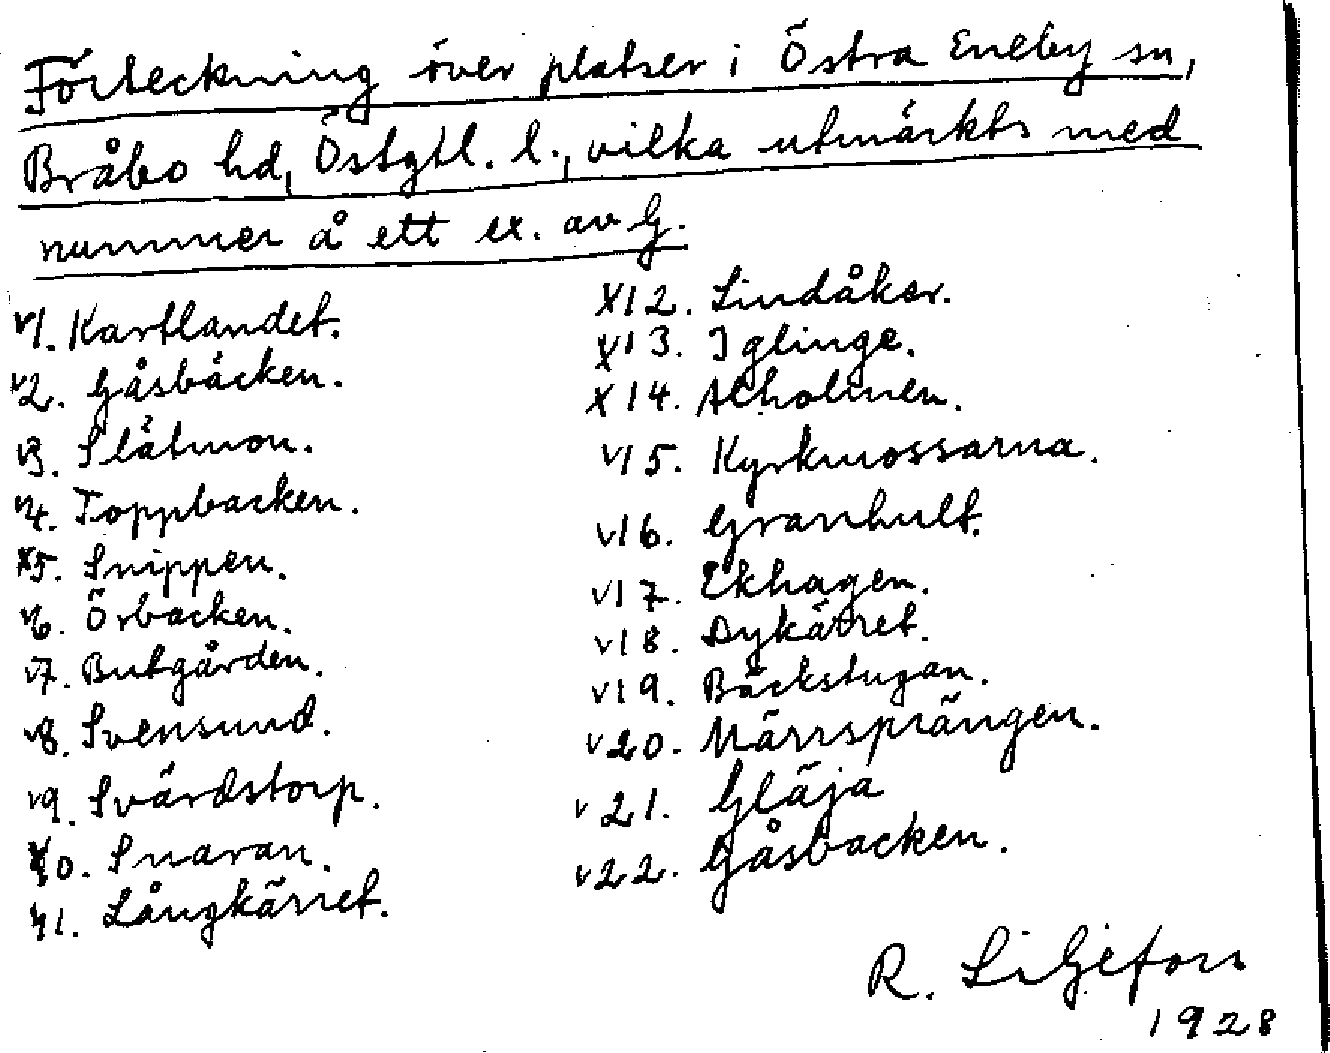 Förteckning över platser i Östra Eneby sn,
Bråbo hd, Östgtl. l., vilka utmärkts med
nummer å ett ex. av G.
v1. Kartlandet.
v2. Gåsbäcken.
v3. Slätmon.
v4. Toppbacken.
x5. Snippen.
v6. Örbacken.
v7. Butgården.
v8. Svensund.
v9. Svärdstorp.
10. Snaran.
11. Långkärret.
x12. Lindåker.
x13. Iglinge.
x14. Alholmen.
v15. Kyrkmossarna.
v16. Granhult.
v17. Ekhagen.
v18. Dykärret.
v19. Bäckstugan.
v20. Märrsprängen.
v21. Gläja
v22. Gåsbacken.
R. Liljefors
1928